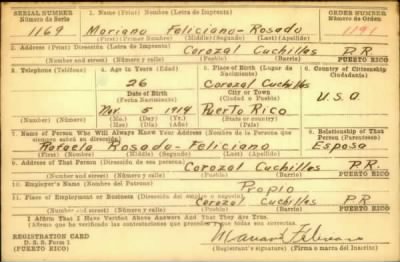 SERIAL NUMBER 1. Name (Print) Nombre (Letra de Imprenta) ORDER NUMBER
Número de Serie Número de Orden
1169 Mariano Feliciano-Rosado 1191
(First) (Primer Nombre) (Middle) (Segundo Nombre) (Last) (Apellido)
2. Address (Print) Dirección (Letra de Imprenta)
Corozal Cuchillas P.R.
(Number and street) (Número y calle) (Pueblo) (Barrio) PUERTO RICO
3. Telephone (Teléfono) 4. Age in Years (Edad) 5. Place of Birth (Lugar de Nacimiento) 6. Country of Citizenship (Ciudadanía)
26 Corozal Cuchillas
Date of Birth City or Town
(Fecha Nacimiento) (Ciudad o Pueblo) U.S.A
Nov. 5 1914 Puerto Rico
(Mo.) (Day) (Yr.) (State or country)
(Mes) (Día) (Año) (Estado o país)
7. Name of Person Who Will Always Know Your Address (Nombre de la Persona que siempre sabrá su dirección) 8. Relationship of That Person (Parentesco)
Rafaela Rosado-Feliciano Esposa
(First) (Nombre) (Middle) (Segundo) (Last) (Apellido)
9. Address of That Person (Dirección de su persona)
Corozal Cuchillas P.R.
(Number and street) (Número y calle) (Pueblo) (Barrio) PUERTO RICO
10. Employer's Name (Nombre del Patrono)
Propio
11. Place of Employment or Business (Dirección del empleo o negocio)
Corozal Cuchillas P.R.
(Number and street) (Número y calle) (Pueblo) (Barrio) PUERTO RICO
I Affirm That I Have Verified Above Answers And That They Are True.
Afirmo que he verificado las contestaciones que preceden y que son ciertas.
REGISTRATION CARD
D. S. S. Form 1
(PUERTO RICO) (Registrant's signature) (Firma o marca del Inscrito)